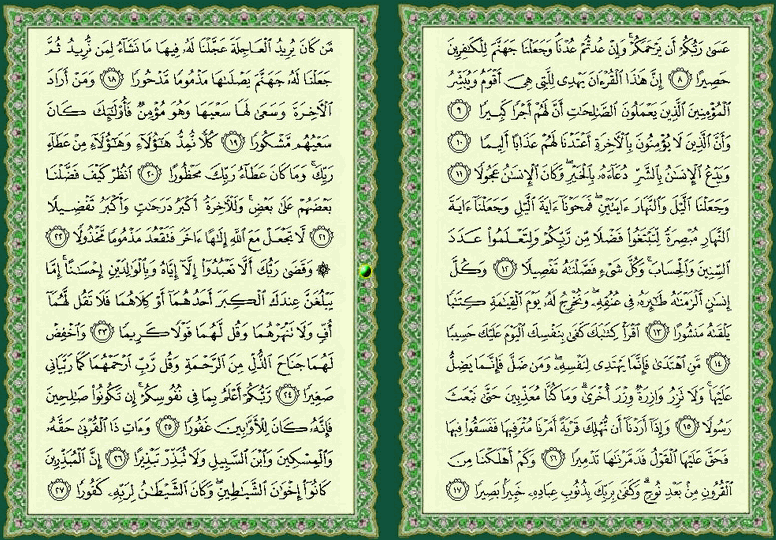 عَسَىٰ رَبُّكُمْ أَن يَرْحَمَكُمْ ۚ وَإِنْ عُدتُّمْ عُدْنَا ۘ وَجَعَلْنَا جَهَنَّمَ لِلْكَٰفِرِينَ
حَصِيرًا ٨ إِنَّ هَٰذَا ٱلْقُرْءَانَ يَهْدِى لِلَّتِى هِىَ أَقْوَمُ وَيُبَشِّرُ
ٱلْمُؤْمِنِينَ ٱلَّذِينَ يَعْمَلُونَ ٱلصَّٰلِحَٰتِ أَنَّ لَهُمْ أَجْرًا كَبِيرًا ٩
وَأَنَّ ٱلَّذِينَ لَا يُؤْمِنُونَ بِٱلْءَاخِرَةِ أَعْتَدْنَا لَهُمْ عَذَابًا أَلِيمًا ١٠
وَيَدْعُ ٱلْإِنسَٰنُ بِٱلشَّرِّ دُعَآءَهُۥ بِٱلْخَيْرِ ۖ وَكَانَ ٱلْإِنسَٰنُ عَجُولًا ١١
وَجَعَلْنَا ٱلَّيْلَ وَٱلنَّهَارَ ءَايَتَيْنِ ۖ فَمَحَوْنَآ ءَايَةَ ٱلَّيْلِ وَجَعَلْنَآ ءَايَةَ
ٱلنَّهَارِ مُبْصِرَةً لِّتَبْتَغُوا۟ فَضْلًا مِّن رَّبِّكُمْ وَلِتَعْلَمُوا۟ عَدَدَ
ٱلسِّنِينَ وَٱلْحِسَابَ ۚ وَكُلَّ شَىْءٍ فَصَّلْنَٰهُ تَفْصِيلًا ١٢ وَكُلَّ
إِنسَٰنٍ أَلْزَمْنَٰهُ طَٰٓئِرَهُۥ فِى عُنُقِهِۦ ۖ وَنُخْرِجُ لَهُۥ يَوْمَ ٱلْقِيَٰمَةِ كِتَٰبًا
يَلْقَىٰهُ مَنشُورًا ١٣ ٱقْرَأْ كِتَٰبَكَ كَفَىٰ بِنَفْسِكَ ٱلْيَوْمَ عَلَيْكَ حَسِيبًا
١٤ مَّنِ ٱهْتَدَىٰ فَإِنَّمَا يَهْتَدِى لِنَفْسِهِۦ ۖ وَمَن ضَلَّ فَإِنَّمَا يَضِلُّ
عَلَيْهَا ۚ وَلَا تَزِرُ وَازِرَةٌ وِزْرَ أُخْرَىٰ ۗ وَمَا كُنَّا مُعَذِّبِينَ حَتَّىٰ نَبْعَثَ
رَسُولًا ١٥ وَإِذَآ أَرَدْنَآ أَن نُّهْلِكَ قَرْيَةً أَمَرْنَا مُتْرَفِيهَا فَفَسَقُوا۟ فِيهَا
فَحَقَّ عَلَيْهَا ٱلْقَوْلُ فَدَمَّرْنَٰهَا تَدْمِيرًا ١٦ وَكَمْ أَهْلَكْنَا مِنَ
ٱلْقُرُونِ مِنۢ بَعْدِ نُوحٍ ۗ وَكَفَىٰ بِرَبِّكَ بِذُنُوبِ عِبَادِهِۦ خَبِيرًۢا بَصِيرًا ١٧
مَّن كَانَ يُرِيدُ ٱلْعَاجِلَةَ عَجَّلْنَا لَهُۥ فِيهَا مَا نَشَآءُ لِمَن نُّرِيدُ ثُمَّ
جَعَلْنَا لَهُۥ جَهَنَّمَ يَصْلَىٰهَا مَذْمُومًا مَّدْحُورًا ١٨ وَمَنْ أَرَادَ
ٱلْءَاخِرَةَ وَسَعَىٰ لَهَا سَعْيَهَا وَهُوَ مُؤْمِنٌ فَأُو۟لَٰٓئِكَ كَانَ
سَعْيُهُم مَّشْكُورًا ١٩ كُلًّا نُّمِدُّ هَٰٓؤُلَآءِ وَهَٰٓؤُلَآءِ مِنْ عَطَآءِ
رَبِّكَ ۚ وَمَا كَانَ عَطَآءُ رَبِّكَ مَحْظُورًا ٢٠ ٱنظُرْ كَيْفَ فَضَّلْنَا
بَعْضَهُمْ عَلَىٰ بَعْضٍ ۚ وَلَلْءَاخِرَةُ أَكْبَرُ دَرَجَٰتٍ وَأَكْبَرُ تَفْضِيلًا
٢١ لَّا تَجْعَلْ مَعَ ٱللَّهِ إِلَٰهًا ءَاخَرَ فَتَقْعُدَ مَذْمُومًا مَّخْذُولًا ٢٢
۞ وَقَضَىٰ رَبُّكَ أَلَّا تَعْبُدُوٓا۟ إِلَّآ إِيَّاهُ وَبِٱلْوَٰلِدَيْنِ إِحْسَٰنًا ۚ إِمَّا
يَبْلُغَنَّ عِندَكَ ٱلْكِبَرَ أَحَدُهُمَآ أَوْ كِلَاهُمَا فَلَا تَقُل لَّهُمَآ
أُفٍّ وَلَا تَنْهَرْهُمَا وَقُل لَّهُمَا قَوْلًا كَرِيمًا ٢٣ وَٱخْفِضْ
لَهُمَا جَنَاحَ ٱلذُّلِّ مِنَ ٱلرَّحْمَةِ وَقُل رَّبِّ ٱرْحَمْهُمَا كَمَا رَبَّيَانِى
صَغِيرًا ٢٤ رَّبُّكُمْ أَعْلَمُ بِمَا فِى نُفُوسِكُمْ ۚ إِن تَكُونُوا۟ صَٰلِحِينَ
فَإِنَّهُۥ كَانَ لِلْأَوَّٰبِينَ غَفُورًا ٢٥ وَءَاتِ ذَا ٱلْقُرْبَىٰ حَقَّهُۥ
وَٱلْمِسْكِينَ وَٱبْنَ ٱلسَّبِيلِ وَلَا تُبَذِّرْ تَبْذِيرًا ٢٦ إِنَّ ٱلْمُبَذِّرِينَ
كَانُوٓا۟ إِخْوَٰنَ ٱلشَّيَٰطِينِ ۖ وَكَانَ ٱلشَّيْطَٰنُ لِرَبِّهِۦ كَفُورًا ٢٧